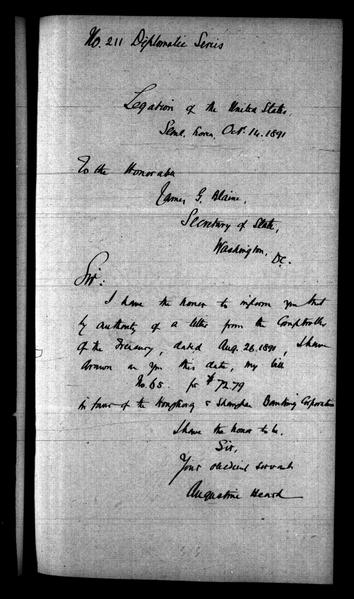 No. 211 Diplomatic Series
Legation of the United States,
Seoul, Korea, Oct. 14. 1891
To the Honorable
James G. Blaine,
Secretary of State,
Washington,
D.C.
Sir:
I have the honor to inform you that
by authority of a letter from the Comptroller
of the Treasury, dated Aug. 26. 1891, I have
drawn on you this date, my bill
No. 65. for $ 72.79
in favor of the Hongkong & Shanghai Banking Corporation
I have the honor to be.
Sir,
Your obedient servant
Augustine Heard